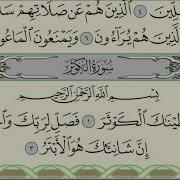 لِّينَ ٤ ٱلَّذِينَ هُمْ عَن صَلَاتِهِمْ سَا
ٱلَّذِينَ هُمْ يُرَآءُونَ ٦ وَيَمْنَعُونَ ٱلْمَاعُو
سُورَةُ الكَوْثَرِ
بِسْمِ ٱللَّهِ ٱلرَّحْمَٰنِ ٱلرَّحِيمِ
طَيْنَٰكَ ٱلْكَوْثَرَ ١ فَصَلِّ لِرَبِّكَ وَٱ
إِنَّ شَانِئَكَ هُوَ ٱلْأَبْتَرُ ٣